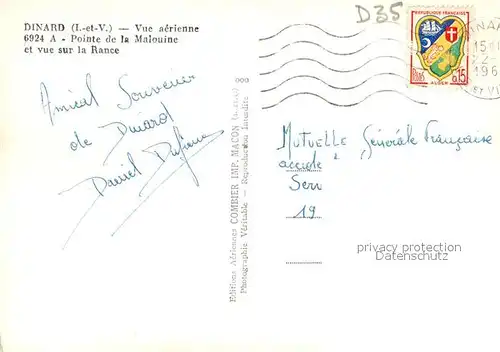 DINARD (I.-et-V.) — Vue aérienne
6924 A - Pointe de la Malouine
et vue sur la Rance
Amical Souvenir
de Dinard
Daniel
000
Editions Aériennes COMBIER IMP. MACON (S.-et-L.)
Photographie Véritable - Reproduction Interdite
D35
REPUBLIQUE FRANÇAISE
POSTES 0,15
ALGER
15
196
ET VI
Mutuelle Générale Française
Serv
19
privacy protection
Datenschutz